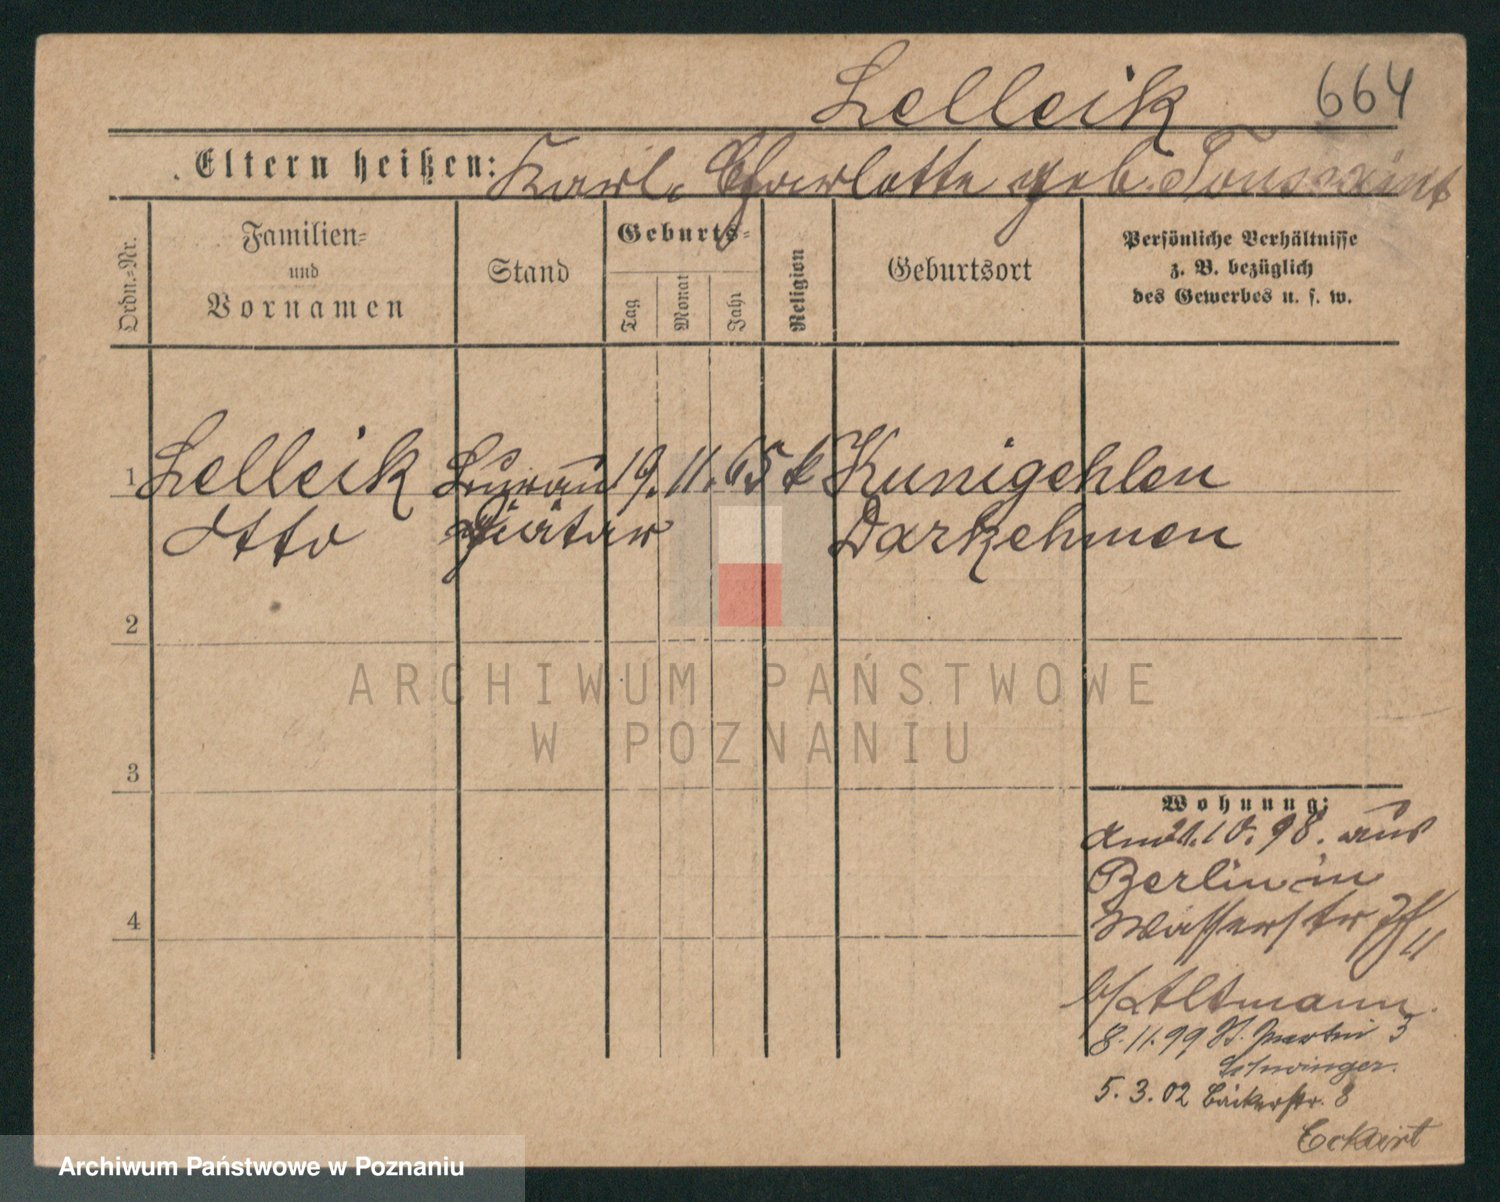 Lelleik 664
Eltern heißen: Karl. Charlotte geb. Toussaint
Ordn.-Nr.
Familien-
und
Vornamen
Stand
Geburts-
Tag
Monat
Jahr
Religion
Geburtsort
Persönliche Verhältnisse
z. B. bezüglich
des Gewerbes u. s. w.
1 Lelleik Büreau 19. 11. 65 k Kunigehlen
Otto diätar Darkehmen
2
3
4
ARCHIWUM PAŃSTWOWE
W POZNANIU
Wohnung:
am 21.10.98. aus
Berlin in
Wasserstr
b/Altmann.
8.11.99 St. Martin 3
Schwinger.
5.3.02 Bäckerstr. 8
Eckart
Archiwum Państwowe w Poznaniu